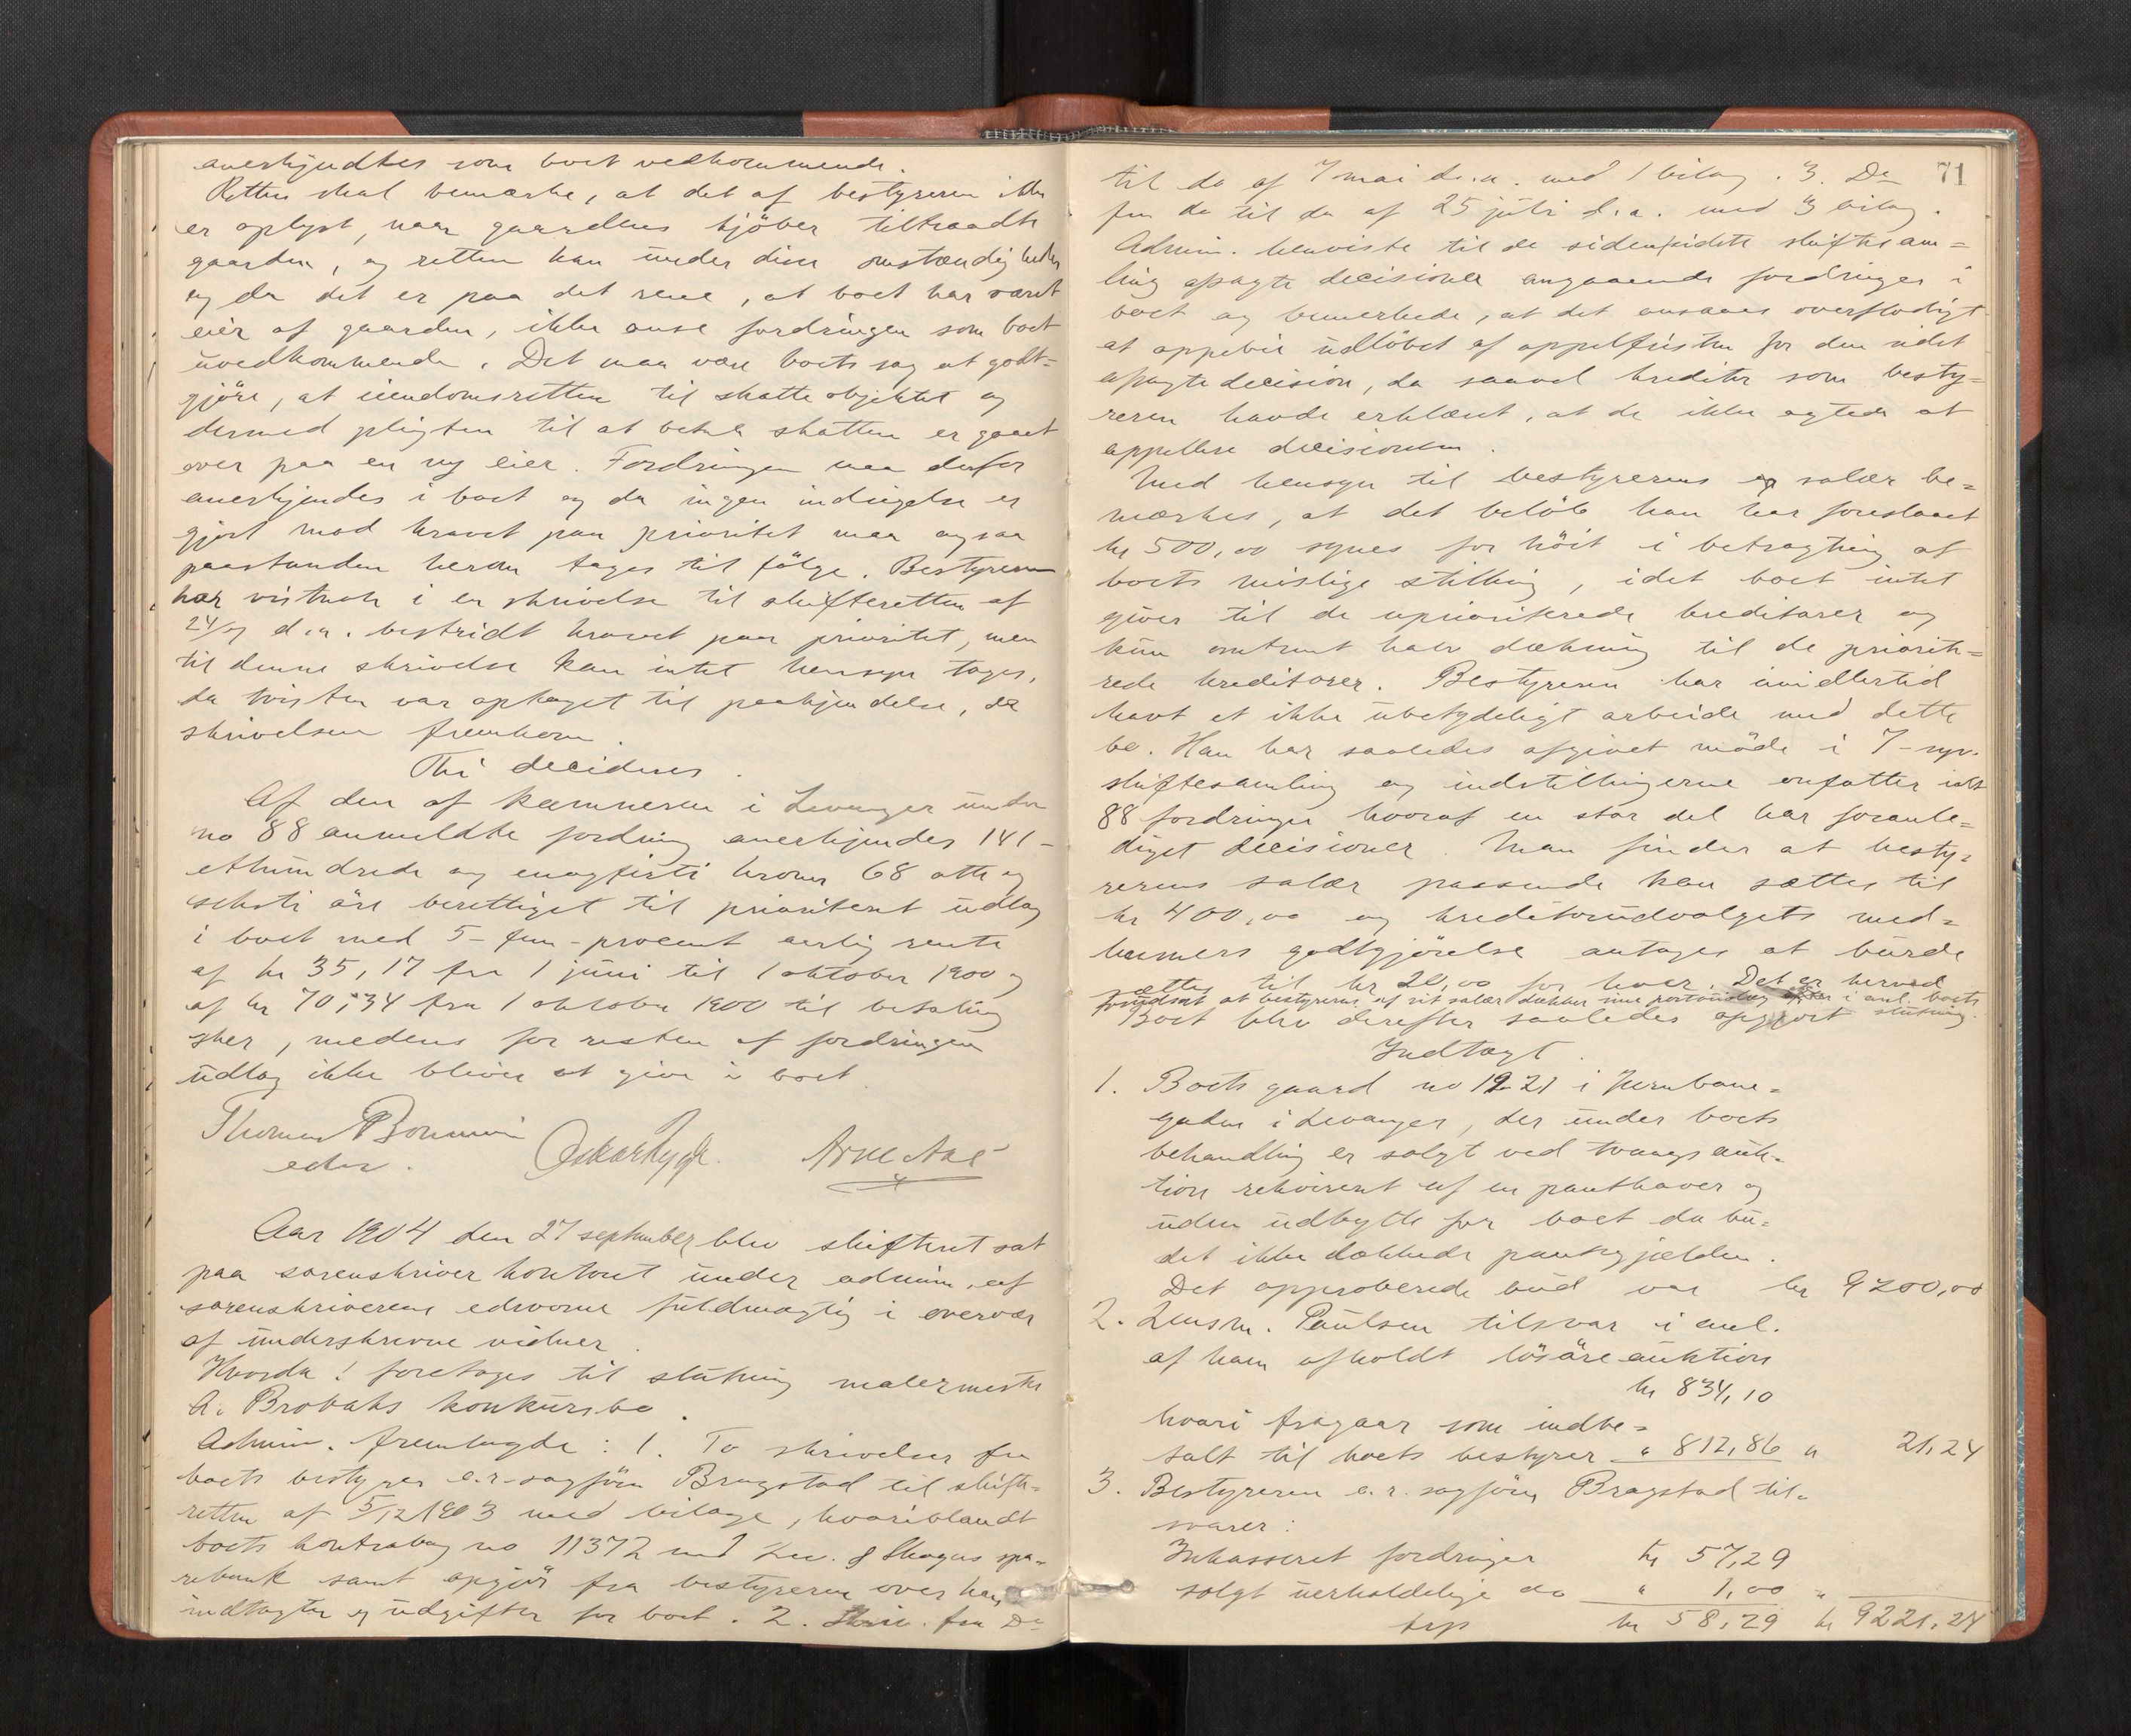 anerkjendtes som boet vedkommende.
Retten skal bemærke, at det af bestyreren ikke
er oplyst, naar gaardens kjöber tiltraadte
gaarden, og retten kan under disse omstændigheder
og da det er paa det rene, at boet har været
eier af gaarden, ikke anse fordringen som boet
uvedkommende. Det maa være boets sag at godt-
gjöre, at eiendomsretten til skatteobjektet og
dermed pligten til at betale skatten er gaaet
over paa en ny eier. Fordringen maa derfor
anerkjendes i boet og da ingen indsigelse er
gjort mod kravet paa prioritet maa ogsaa
paastanden herom tages til fölge. Bestyreren
har vistnok i en skrivelse til skifteretten af
24/9 d.a. bestridt kravet paa prioritet, men
til denne skrivelse kan intet hensyn tages,
da tvisten var optaget til paakjendelse, da
skrivelsen fremkom.
Thi decideres.
Af den af kæmneren i Levanger under
no 88 anmeldte fordring anerkjendes 141 -
ethundrede og enogfirti kroner 68 otte og
seksti öre berettiget til prioriteret udlæg
i boet med 5 - fem - procent aarlig rente
af kr 35,17 fra 1 juni til 1 oktober 1900 og
af kr 70,34 fra 1 oktober 1900 til betaling
sker, medens for resten af fordringen
udlæg ikke bliver at give i boet.
Thomas
edsv. Arne Aae
Aar 1904 den 27 september blev skifteret sat
paa sorenskriverkontoret under admin. af
sorenskriverens edsvorne fuldmægtig i overvær
af underskrevne vidner.
Hvorda: foretages til slutning malermester
A. Brobaks konkursbo.
Admin. fremlagde: 1. To skrivelser fra
boets bestyrer o.r.sagförer Bragstad til skifte-
retten af 5/12 1903 med bilage, hvoriblandt
boets kontrabog no 11372 med Lev. & Skogns spa-
rebank samt opgjör fra bestyreren over hans
indtægter og udgifter for boet. 2. Skriv. fra Do
71
til do af 7 mai d.a. med 1 bilag. 3. Do
fra do til do af 25 juli d.a. med 3 bilag.
Admin. henviste til de siden sidste skiftesam=
ling afsagte decisioner angaaende fordringer i
boet og bemerkede, at det ansaaes overflødigt
at oppebie udlöbet af appelfristen for den sidst
afsagte decision, da saavel kreditor som besty=
reren havde erklæret, at de ikke agtede at
appellere decisionen.
Med hensyn til bestyrerens salær be=
mærkes, at det belöb han har foreslaaet
kr 500,00 synes for höit i betragtning af
boets mislige stilling, idet boet intet
giver til de uprioriterede kreditorer og
kun omtrent halv dækning til de priorite=
rede kreditorer. Bestyreren har imidlertid
havt et ikke ubetydeligt arbeide med dette
bo. Han har saaledes afgivet möde i 7 - syv -
skiftesamling og indstillingerne omfatter ialt
88 fordringer hvoraf en stor del har foranle=
diget decisioner. Man finder at besty=
rerens salær passende kan sættes til
kr 400,00 og kreditorudvalgets med=
lemmers godtgjörelse antages at burde
sættes til kr 20,00 for hver. Det er herved
forudsat at bestyreren af sit salær dækker sine portoudlæg i anl. boets
slutning.
Boet blev derefter saaledes opgjort
Indtægt.
1. Boets gaard no 19-21 i Jernbane-
gaden i Levanger, der under boets
behandling er solgt ved tvangsauk-
tion rekvireret af en panthaver og
uden udbytte for boet da bu-
det ikke dækkede pantegjælden.
Det approberede bud var kr 9200,00
2. Lensm. Paulsen tilsvar i anl.
af ham afholdt lösöreauktion
kr 834,10
hvori fragaar som indbe-
talt til boets bestyrer " 812,86 " 21,24
3. Bestyreren o.r.sagförer Bragstad til-
svarer:
Inkasseret fordringer kr 57,29
solgt uerholdelige do " 1,00 "
trsp kr 58,29 kr 9221,24